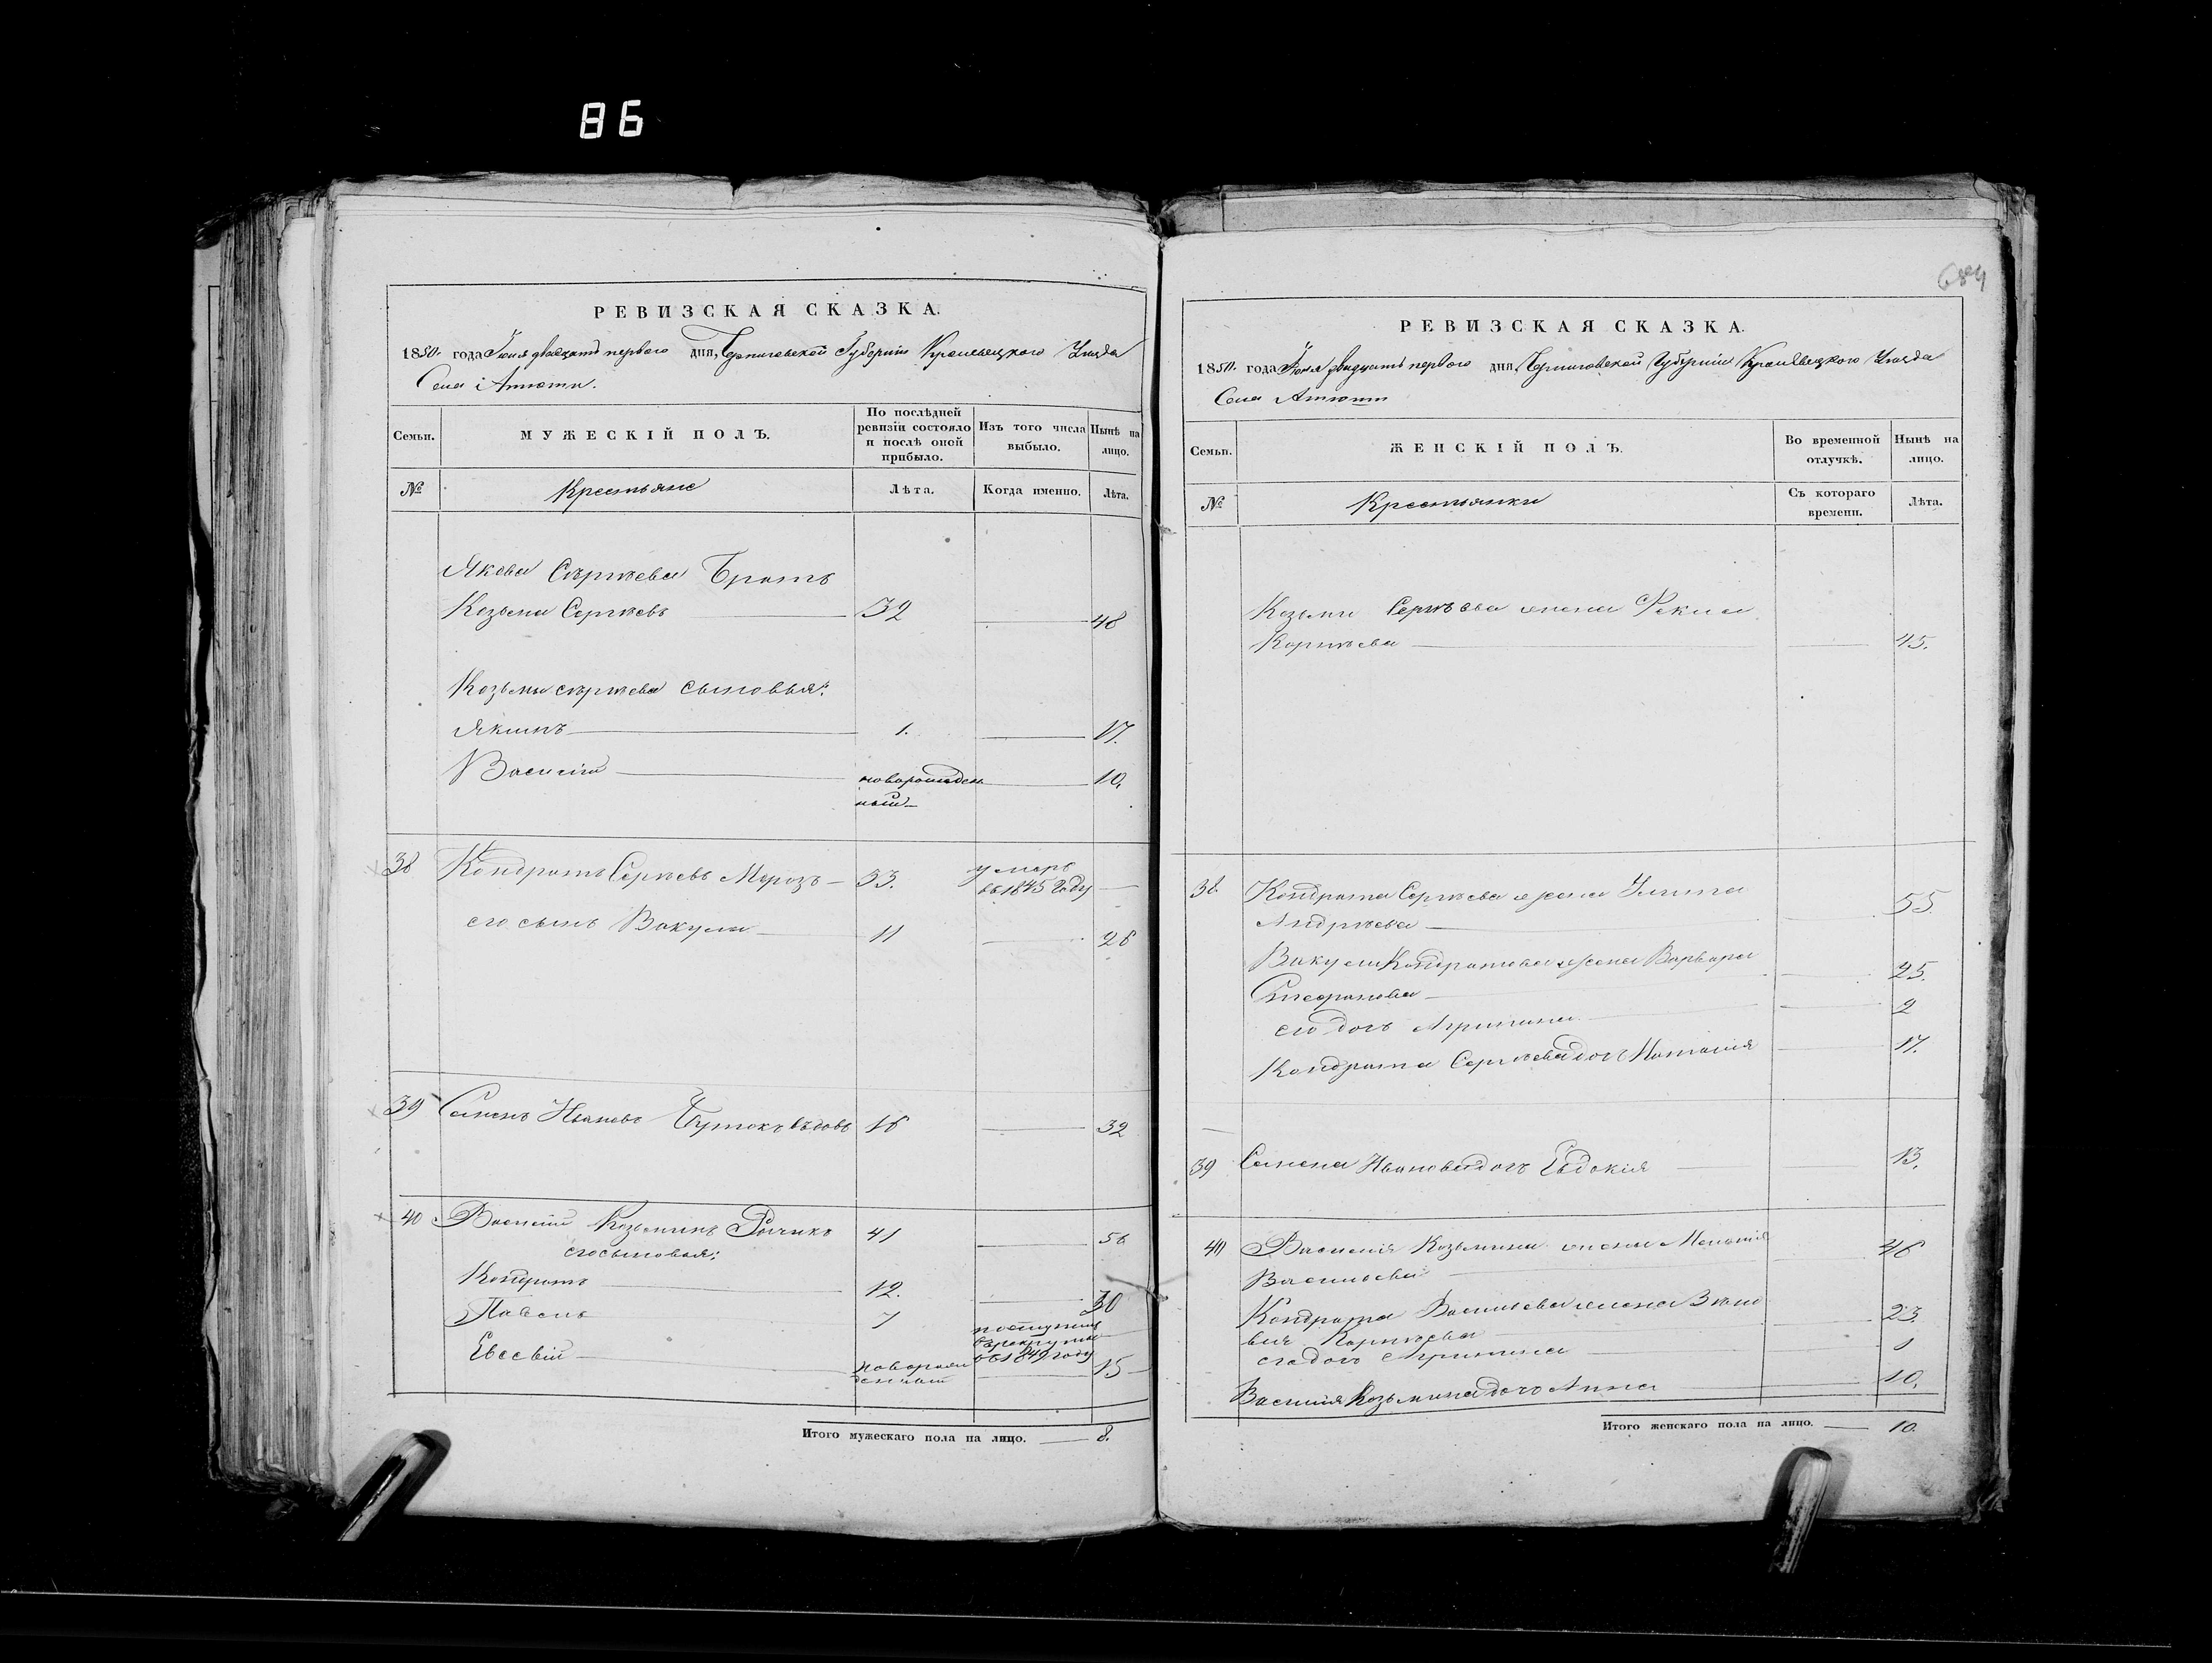 86
РЕВИЗСКАЯ СКАЗКА.
1850. года Іюня двадцать первого дня, Черниговской Губерніи Кролевецкого Уѣзда
Села Атюши.
Семьи.
МУЖЕСКІЙ ПОЛЪ.
По послѣдней ревизіи состояло и послѣ оной прибыло.
Изъ того числа выбыло.
Нынѣ на лицо.
№
Крестьяне
Лѣта.
Когда именно.
Лѣта.
Якова Сергѣева Братъ
Козьма Сергѣевъ 32 48
Козьмы Сергѣева сыновья:
Якимъ 1. 17.
Василій новорожден 10.
ный
38 Кондратъ Сергѣевъ Морозъ 33. умеръ
въ 1845 году
его сынъ Вакула 11 26
39 Семенъ Ивановъ 16 32
40 Василій Козьминъ 41 56
его сыновья:
Кондратъ 12. 30
Павелъ 7 поступилъ
въ рекруты
въ 1849 году
Евсевій новорож 15
денный
Итого мужескаго пола на лицо. 8.
684
РЕВИЗСКАЯ СКАЗКА.
1850. года Іюня двадцать первого дня, Черниговской Губерніи Кролевецкого Уѣзда
Села Атюши
Семьи.
ЖЕНСКІЙ ПОЛЪ.
Во временной отлучкѣ.
Нынѣ на лицо.
№
Крестьянки
Съ котораго времени.
Лѣта.
Козьмы Сергѣева жена Фекла
Корнѣева 45.
38. Кондрата Сергѣева жена Улита 55.
Андрѣева
Вакулы Кондратова жена Варвара 25.
Стефанова
его дочь Агрипина 2
Кондрата Сергѣева дочь Наталія 17.
39 Семена Иванова дочь Евдокія 13.
40 Василія Козьмина жена Меланія 46
Васильева
Кондрата Васильева жена Зѣно 23.
вія Корнѣева
его дочь Агрипина 1
Василія Козьмина дочь Анна 10.
Итого женскаго пола на лицо. 10.